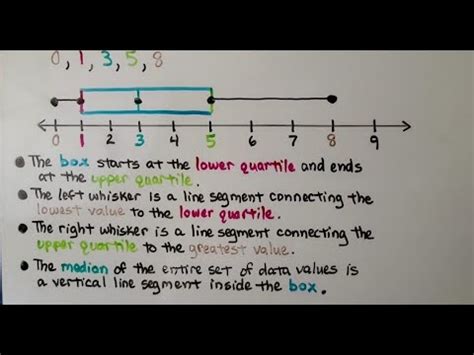 0, 1, 3, 5, 8
0 1 2 3 4 5 6 7 8 9
The box starts at the lower quartile and ends
at the upper quartile.
The left whisker is a line segment connecting the
lowest value to the lower quartile.
The right whisker is a line segment connecting the
upper quartile to the greatest value.
The median of the entire set of data values is
a vertical line segment inside the box.